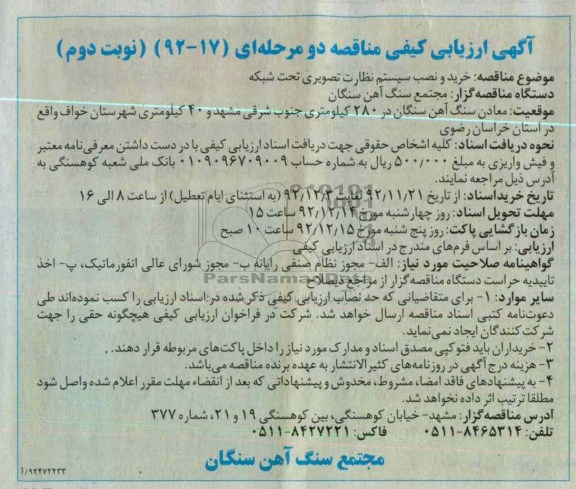 آگهی ارزیابی کیفی مناقصه دو مرحله‌ای (۱۷-۹۲) (نوبت دوم)
موضوع مناقصه: خرید و نصب سیستم نظارت تصویری تحت شبکه
دستگاه مناقصه‌گزار: مجتمع سنگ آهن سنگان
موقعیت: معادن سنگ آهن سنگان در ۲۸۰ کیلومتری جنوب شرقی مشهد و ۴۰ کیلومتری شهرستان خواف واقع
در استان خراسان رضوی
نحوه دریافت اسناد: کلیه اشخاص حقوقی جهت دریافت اسناد ارزیابی کیفی با در دست داشتن معرفی‌نامه معتبر
و فیش واریزی به مبلغ ۵۰۰/۰۰۰ ریال به شماره حساب ۰۱۰۹۰۹۶۷۰۹۰۰۹ بانک ملی شعبه کوهسنگی به
آدرس ذیل مراجعه نمایند.
تاریخ خرید اسناد: از تاریخ ۹۲/۱۱/۲۱ لغایت ۹۲/۱۲/۳ (به استثنای ایام تعطیل) از ساعت ۸ الی ۱۶
مهلت تحویل اسناد: روز چهارشنبه مورخ ۹۲/۱۲/۱۴ ساعت ۱۵
زمان بازگشایی پاکت: روز پنج شنبه مورخ ۹۲/۱۲/۱۵ ساعت ۱۰ صبح
ارزیابی: بر اساس فرم‌های مندرج در اسناد ارزیابی کیفی
گواهینامه صلاحیت مورد نیاز: الف- مجوز نظام صنفی رایانه ب- مجوز شورای عالی انفورماتیک، پ- اخذ
تاییدیه حراست دستگاه مناقصه‌گزار از مراجع ذیصلاح
ParsNamadData
سایر موارد: ۱- برای متقاضیانی که حد نصاب ارزیابی کیفی ذکر شده در اسناد ارزیابی را کسب نموده‌اند طی
دعوت‌نامه کتبی اسناد مناقصه ارسال خواهد شد. شرکت در فراخوان ارزیابی کیفی هیچگونه حقی را جهت
شرکت‌کنندگان ایجاد نمی‌نماید.
۲- خریداران باید فتوکپی مصدق اسناد و مدارک مورد نیاز را داخل پاکت‌های مربوطه قرار دهند.
۳- هزینه درج آگهی در روزنامه‌های کثیرالانتشار به عهده برنده مناقصه می‌باشد.
۴- به پیشنهادهای فاقد امضا، مشروط، مخدوش و پیشنهاداتی که بعد از انقضاء مهلت مقرر اعلام شده واصل شود
مطلقا ترتیب اثر داده نخواهد شد.
آدرس مناقصه‌گزار: مشهد- خیابان کوهسنگی، بین کوهسنگی ۱۹ و ۲۱، شماره ۳۷۷
تلفن: ۸۴۶۵۳۱۴-۰۵۱۱ فاکس: ۸۴۲۷۲۲۱-۰۵۱۱
مجتمع سنگ آهن سنگان
۱/۹۲۴۷۲۴۳۳